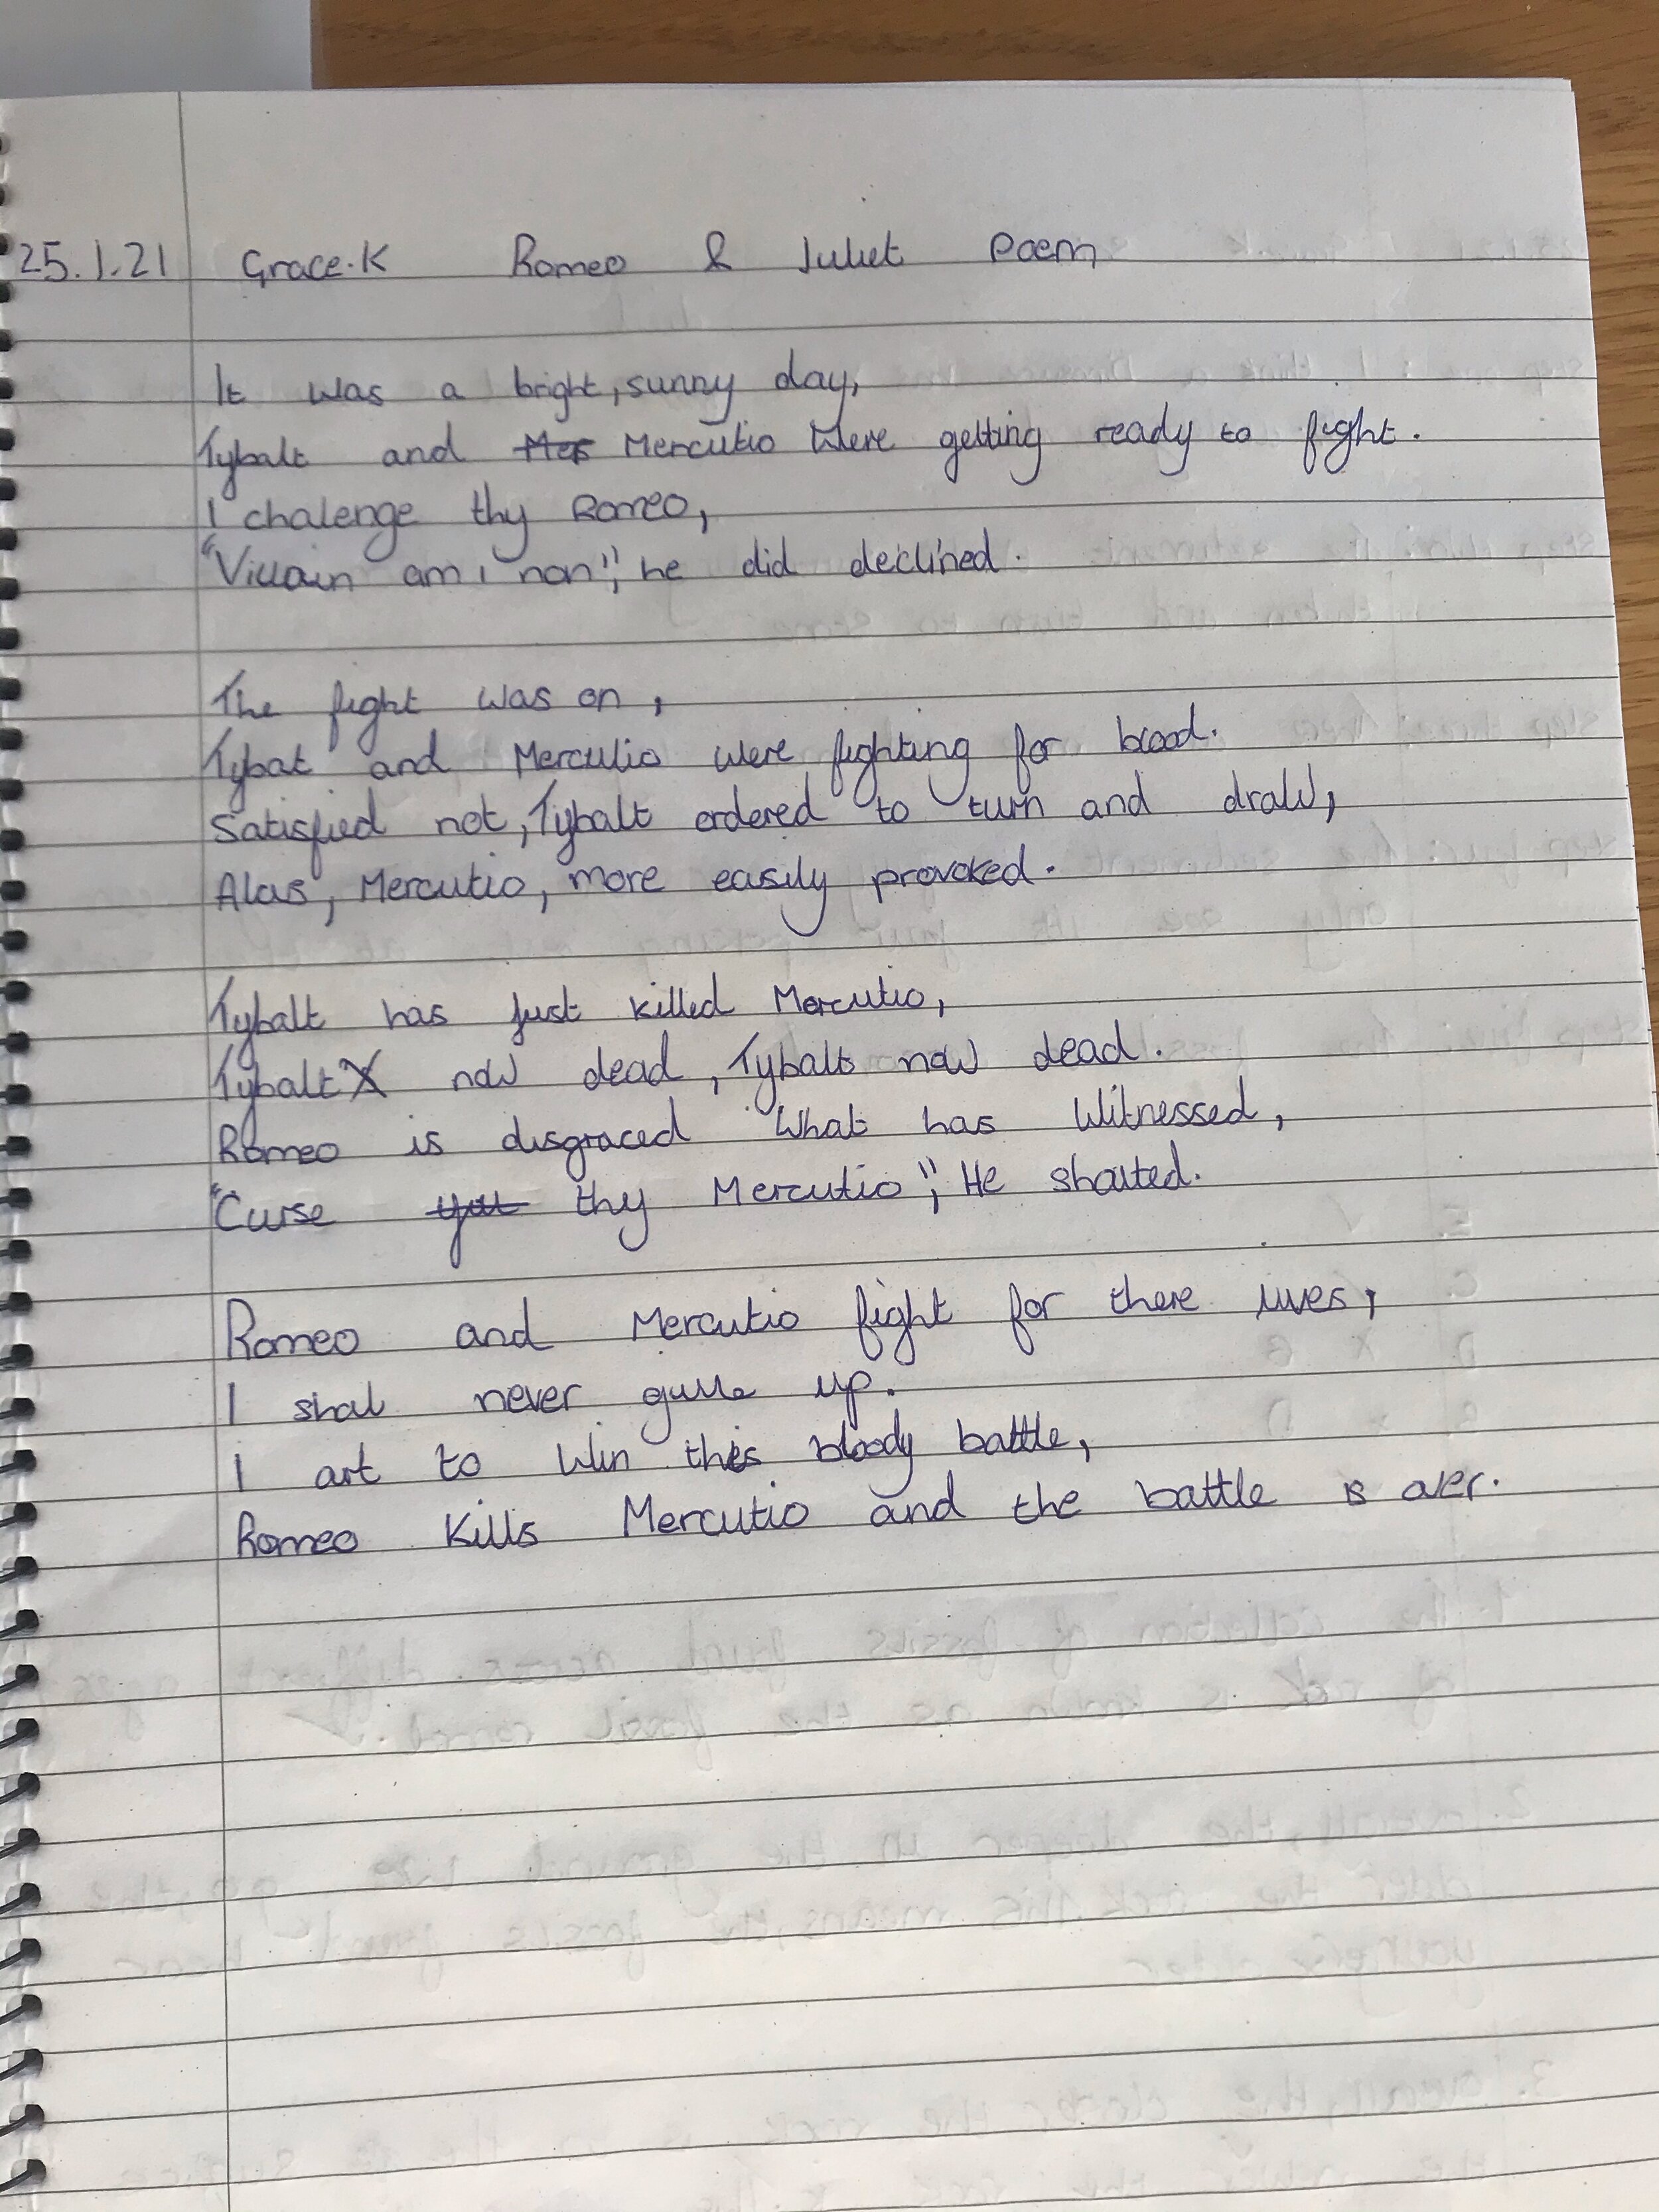 25.1.21 Grace.K Romeo & Juliet Poem
It was a bright, sunny day,
Tybalt and Mer Mercutio Were getting ready to fight.
I chalenge thy Romeo,
"Villain am i non", he did declined.
The fight was on,
Tybat and Mercutio were fighting for blood.
Satisfied not, Tybalt ordered to turn and draw,
Alas, Mercutio, more easily provoked.
Tybalt has just killed Mercutio,
Tybalt now dead, Tybalt now dead.
Romeo is disgraced What has Witnessed,
"Curse you thy Mercutio", He shouted.
Romeo and Mercutio fight for there lives,
I shal never give up.
I art to Win this bloody battle,
Romeo Kills Mercutio and the battle is over.